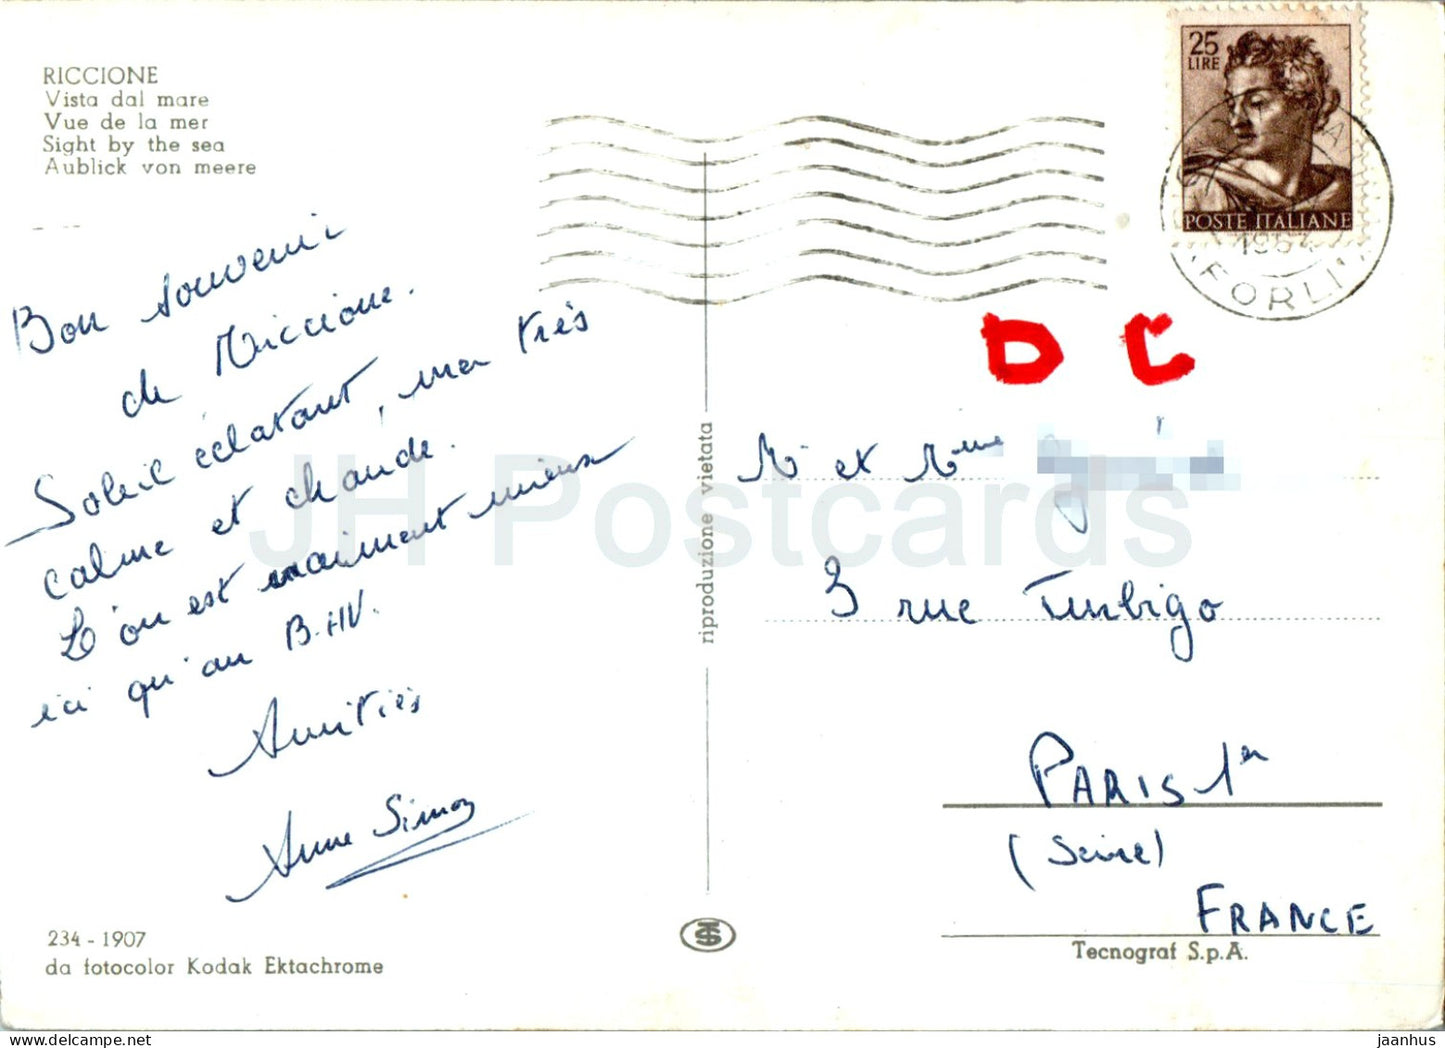 RICCIONE
Vista dal mare
Vue de la mer
Sight by the sea
Aublick von meere
Bon souvenir
de Riccione.
Soleil éclatant, mer très
calme et chaude.
L'on est vraiment mieux
ici qu'au B.HV.
Amitiés
Anne Simon
234 - 1907
da fotocolor Kodak Ektachrome
riproduzione vietata
25
LIRE
POSTE ITALIANE
FORLI'
D C
Mr et Mme
3 rue Turbigo
PARIS 1er
(Seine)
FRANCE
Tecnograf S.p.A.
JH Postcards
234 - 1907 RICCIONE 1964 jaanhus